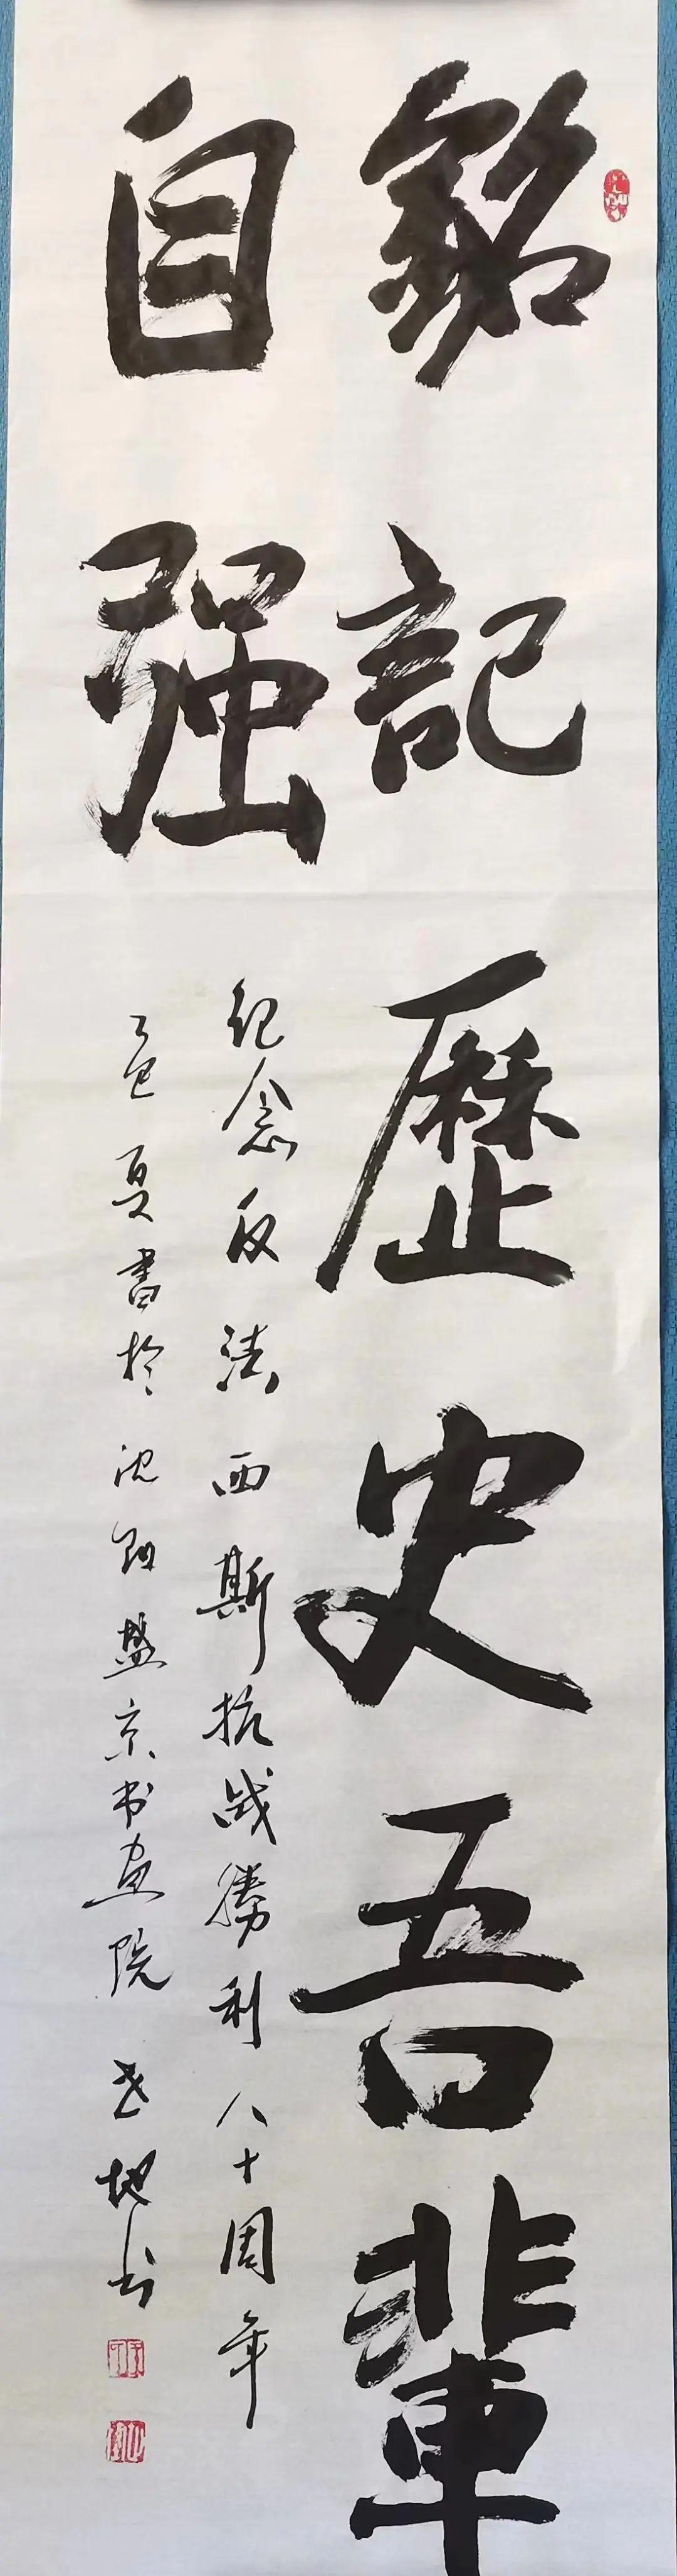 銘記歷史吾輩
自强
纪念反法西斯抗战勝利八十周年
乙巳夏書於沈阳盛京书画院 地书